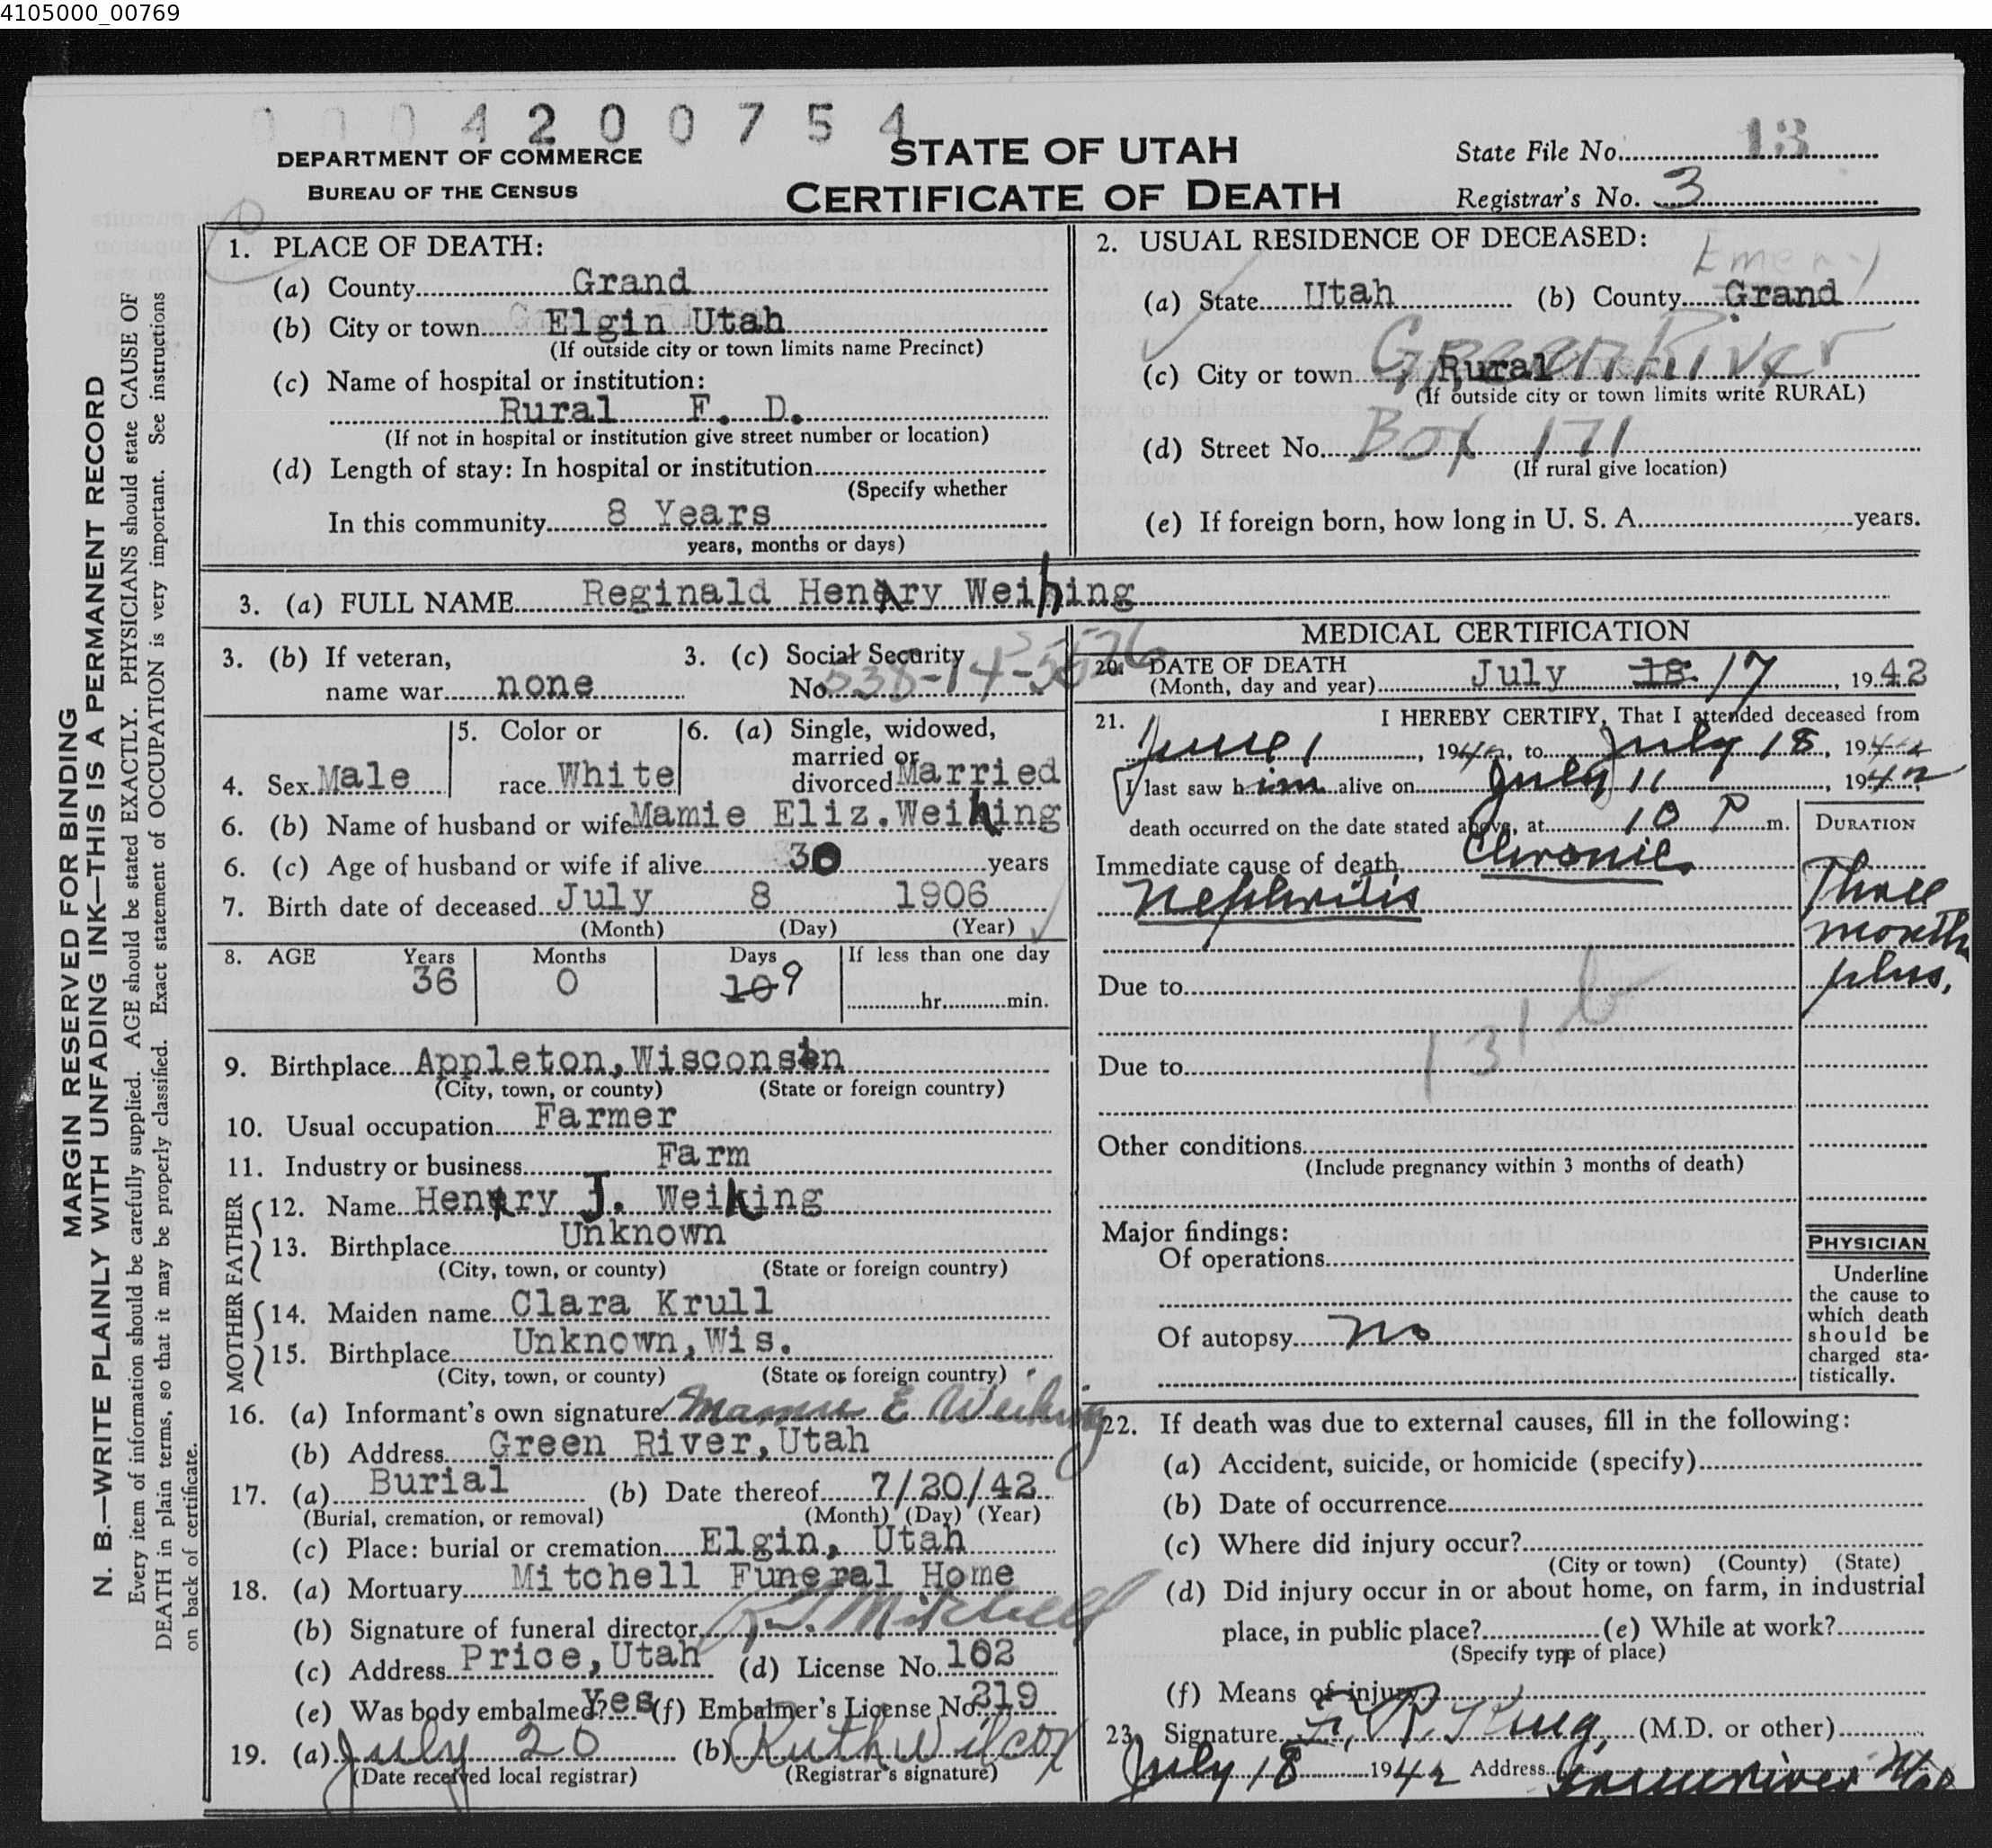 4105000_00769
0 0 0 4 2 0 0 7 5 4
DEPARTMENT OF COMMERCE
BUREAU OF THE CENSUS
STATE OF UTAH
CERTIFICATE OF DEATH
State File No. 13
Registrar's No. 3
MARGIN RESERVED FOR BINDING
N. B.—WRITE PLAINLY WITH UNFADING INK—THIS IS A PERMANENT RECORD
Every item of information should be carefully supplied. AGE should be stated EXACTLY. PHYSICIANS should state CAUSE OF
DEATH in plain terms, so that it may be properly classified. Exact statement of OCCUPATION is very important. See instructions
on back of certificate.
1. PLACE OF DEATH:
(a) County Grand
(b) City or town Elgin Utah
(If outside city or town limits name Precinct)
(c) Name of hospital or institution:
Rural F. D.
(If not in hospital or institution give street number or location)
(d) Length of stay: In hospital or institution
(Specify whether
In this community 8 Years
years, months or days)
2. USUAL RESIDENCE OF DECEASED:
Emery
(a) State Utah (b) County Grand
Green River
(c) City or town Rural
(If outside city or town limits write RURAL)
(d) Street No. Box 171
(If rural give location)
(e) If foreign born, how long in U. S. A. years.
3. (a) FULL NAME Reginald Henry Weihing
3. (b) If veteran,
name war none
3. (c) Social Security
No. 538-14-5576
4. Sex Male
5. Color or
race White
6. (a) Single, widowed,
married or
divorced Married
6. (b) Name of husband or wife Mamie Eliz. Weihing
6. (c) Age of husband or wife if alive 30 years
7. Birth date of deceased July 8 1906
(Month) (Day) (Year)
8. AGE Years Months Days If less than one day
36 0 10 9 hr. min.
9. Birthplace Appleton, Wisconsin
(City, town, or county) (State or foreign country)
10. Usual occupation Farmer
11. Industry or business Farm
FATHER
12. Name Henry J. Weihing
13. Birthplace Unknown
(City, town, or county) (State or foreign country)
MOTHER
14. Maiden name Clara Krull
15. Birthplace Unknown, Wis.
(City, town, or county) (State or foreign country)
16. (a) Informant's own signature Mamie E Weihing
(b) Address Green River, Utah
17. (a) Burial (b) Date thereof 7/20/42
(Burial, cremation, or removal) (Month) (Day) (Year)
(c) Place: burial or cremation Elgin, Utah
18. (a) Mortuary Mitchell Funeral Home
(b) Signature of funeral director Mitchell
(c) Address Price, Utah (d) License No. 102
(e) Was body embalmed? Yes (f) Embalmer's License No. 219
19. (a) July 20 (b) Ruth Wilcox
(Date received local registrar) (Registrar's signature)
MEDICAL CERTIFICATION
20. DATE OF DEATH
(Month, day and year) July 18 17, 1942
21. I HEREBY CERTIFY, That I attended deceased from
June 1, 1942, to July 18, 1942
I last saw him alive on July 11, 1942
death occurred on the date stated above, at 10 P m.
DURATION
Immediate cause of death Chronic
Nephritis
Three
months
plus,
Due to
131 b
Due to
Other conditions
(Include pregnancy within 3 months of death)
Major findings:
Of operations
Of autopsy no
PHYSICIAN
Underline
the cause to
which death
should be
charged sta-
tistically.
22. If death was due to external causes, fill in the following:
(a) Accident, suicide, or homicide (specify)
(b) Date of occurrence
(c) Where did injury occur?
(City or town) (County) (State)
(d) Did injury occur in or about home, on farm, in industrial
place, in public place? (e) While at work?
(Specify type of place)
(f) Means of injury
23. Signature R. King (M.D. or other)
July 18 1942 Address Greenriver Utah